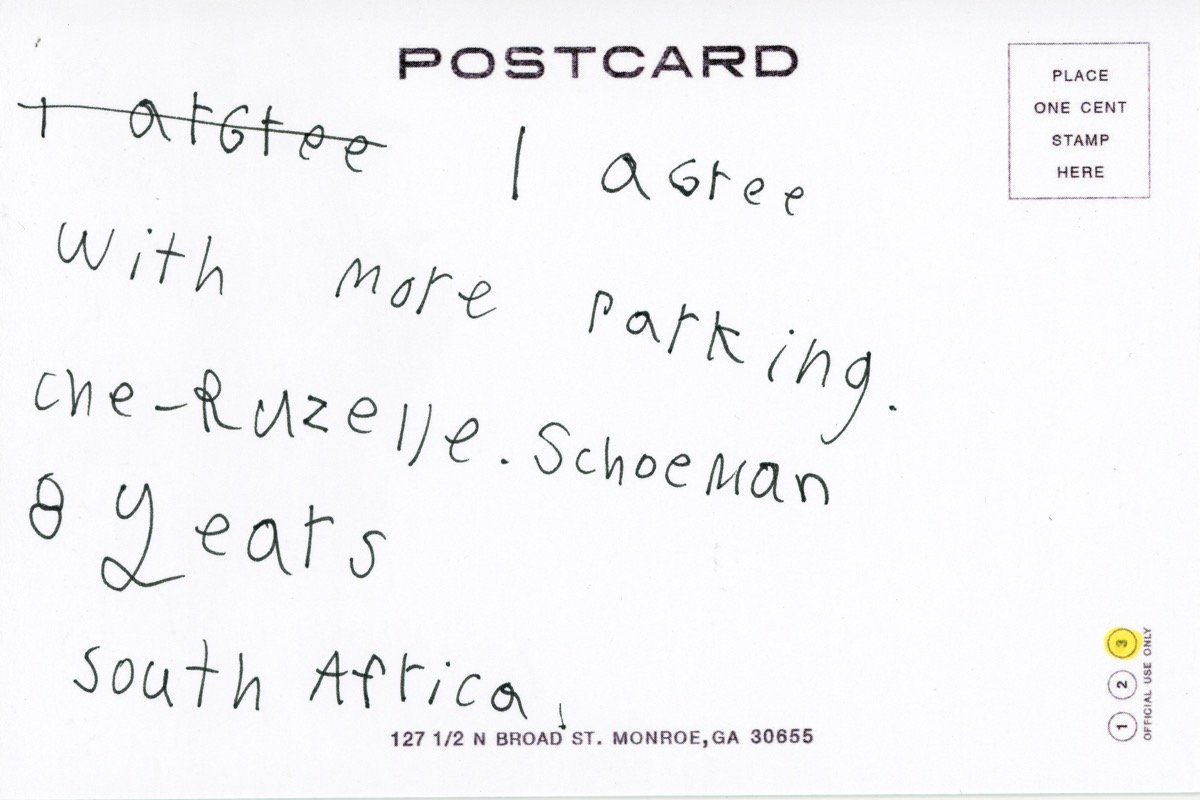 POSTCARD
PLACE
ONE CENT
STAMP
HERE
I argree I agree
with more parking.
che-Ruzelle. Schoeman
8 years
south Africa,
127 1/2 N BROAD ST. MONROE, GA 30655
1 2 3
OFFICIAL USE ONLY